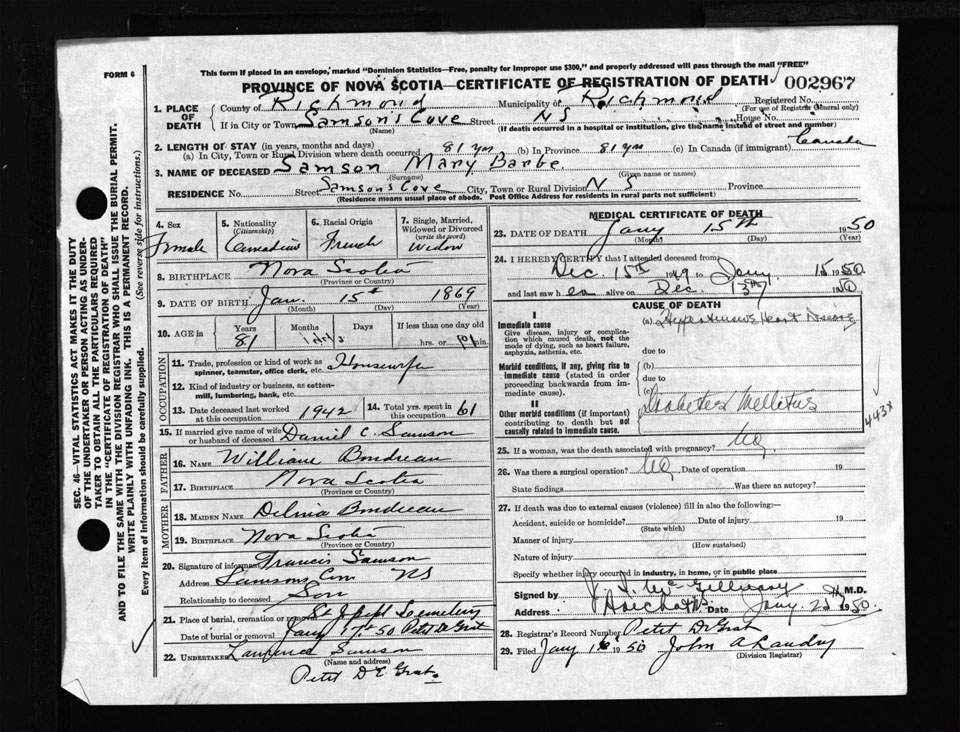 FORM 6
This form if placed in an envelope, marked "Dominion Statistics—Free, penalty for improper use $300," and properly addressed will pass through the mail "FREE"
PROVINCE OF NOVA SCOTIA—CERTIFICATE OF REGISTRATION OF DEATH 002967
1. PLACE OF DEATH County of Richmond Municipality of Richmond Registered No. (For use of Registrar General only)
If in City or Town Samson's Cove Street NS House No.
(Name) (If death occurred in a hospital or institution, give the name instead of street and number)
2. LENGTH OF STAY (in years, months and days)
(a) In City, Town or Rural Division where death occurred 81 yrs (b) In Province 81 yrs (c) In Canada (if immigrant) Canada
3. NAME OF DECEASED Samson Mary Barbe
(Surname) (Given name or names)
RESIDENCE No. Street Samson's Cove City, Town or Rural Division N S Province
(Residence means usual place of abode. Post Office Address for residents in rural parts not sufficient)
4. Sex Female
5. Nationality (Citizenship) Canadian
6. Racial Origin French
7. Single, Married, Widowed or Divorced (write the word) Widow
8. BIRTHPLACE Nova Scotia
(Province or Country)
9. DATE OF BIRTH Jan. 15th 1869
(Month) (Day) (Year)
10. AGE in Years 81 Months Days If less than one day old hrs. or min.
OCCUPATION
11. Trade, profession or kind of work as spinner, teamster, office clerk, etc. Housewife
12. Kind of industry or business, as cotton-mill, lumbering, bank, etc.
13. Date deceased last worked at this occupation 1942
14. Total yrs. spent in this occupation 61
15. If married give name of wife or husband of deceased Daniel C. Samson
FATHER
16. NAME William Boudreau
17. BIRTHPLACE Nova Scotia
(Province or Country)
MOTHER
18. MAIDEN NAME Delina Boudreau
19. BIRTHPLACE Nova Scotia
(Province or Country)
20. Signature of informant Francis Samson
Address Samsons Cove NS
Relationship to deceased Son
21. Place of burial, cremation or removal St Joseph Cemetery
Date of burial or removal Jany 17th 50 Petit De Grat
22. UNDERTAKER Lawrence Samson
(Name and address)
Petit De Grat
MEDICAL CERTIFICATE OF DEATH
23. DATE OF DEATH Jany 15th 1950
(Month) (Day) (Year)
24. I HEREBY CERTIFY that I attended deceased from
Dec. 15th 1949 to Jany. 15 1950
and last saw her alive on Dec. 19
CAUSE OF DEATH
I
Immediate cause
Give disease, injury or complication which caused death, not the mode of dying, such as heart failure, asphyxia, asthenia, etc.
(a) Hypertensive Heart Disease
due to
Morbid conditions, if any, giving rise to immediate cause (stated in order proceeding backwards from immediate cause).
(b)
due to
(c)
II
Other morbid conditions (if important) contributing to death but not causally related to immediate cause.
Diabetes Mellitus
443X
25. If a woman, was the death associated with pregnancy? No.
26. Was there a surgical operation? No Date of operation 19
State findings Was there an autopsy?
27. If death was due to external causes (violence) fill in also the following:—
Accident, suicide or homicide? Date of injury 19
(State which)
Manner of injury
(How sustained)
Nature of injury
Specify whether injury occurred in industry, in home, or in public place
Signed by McGillivary M.D.
Address Arichat NS Date Jany 1950.
28. Registrar's Record Number Petit De Grat
29. Filed Jany 1950 John A Landry
(Division Registrar)
SEC. 46—VITAL STATISTICS ACT MAKES IT THE DUTY
OF THE UNDERTAKER OR PERSON ACTING AS UNDER-
TAKER TO OBTAIN ALL THE PARTICULARS REQUIRED
IN THE "CERTIFICATE OF REGISTRATION OF DEATH"
AND TO FILE THE SAME WITH THE DIVISION REGISTRAR WHO SHALL ISSUE THE BURIAL PERMIT.
WRITE PLAINLY WITH UNFADING INK. THIS IS A PERMANENT RECORD.
Every item of information should be carefully supplied. (See reverse side for instructions.)